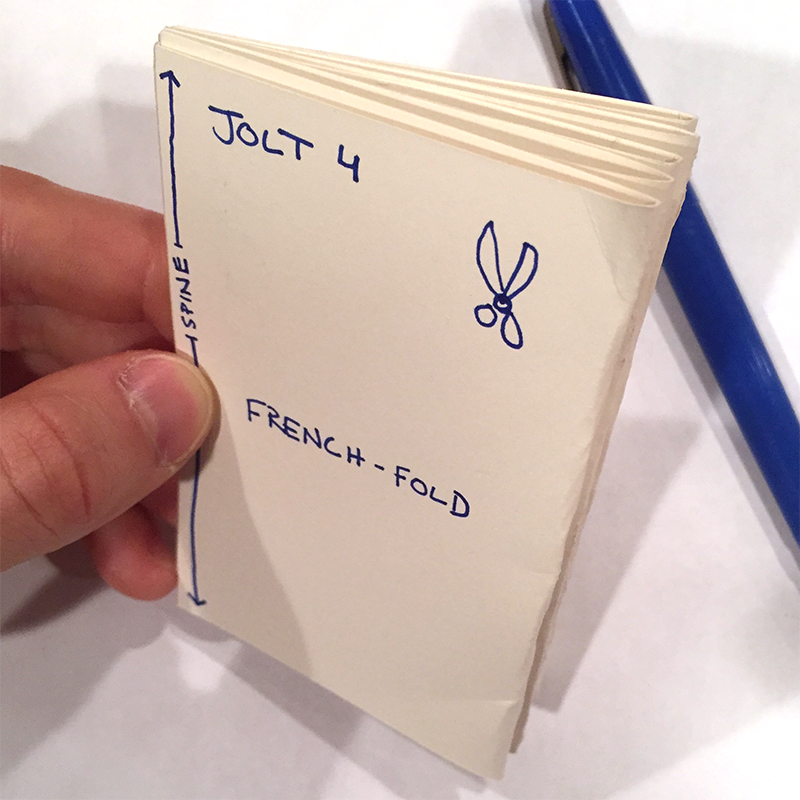 JOLT 4
SPINE
FRENCH-FOLD